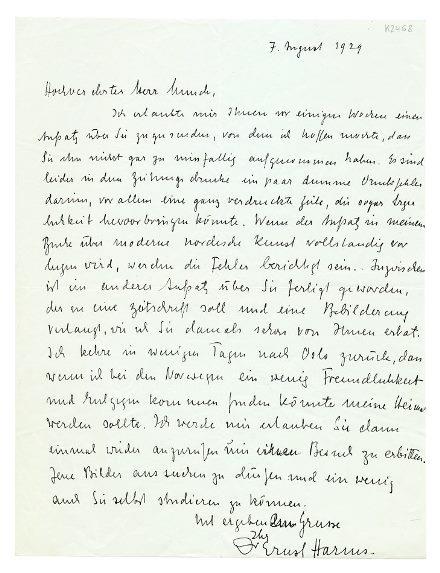 K2468
7. August 1929
Hochverehrter Herr Munch,
Ich erlaubte mir Ihnen vor einigen Wochen einen
Aufsatz über Sie zuzusenden, von dem ich hoffen möchte, dass
Sie ihn nicht gar zu missfällig aufgenommen haben. Es sind
leider in dem Zeitungsdrucke ein paar dumme Druckfehler
darin, vor allem eine ganz verdruckte Zeile, die sogar
hervorbringen könnte. Wenn der Aufsatz in meinem
Buche über moderne nordische Kunst vollständig vor
liegen wird, werden die Fehler berichtigt sein. Inzwischen
ist ein anderer Aufsatz über Sie fertig geworden,
der in eine Zeitschrift soll und eine Bebilderung
verlangt, wie ich Sie damals schon von Ihnen erbat.
Ich kehre in wenigen Tagen nach Oslo zurück, dass
wenn ich bei den Norwegern ein wenig Freundlichkeit
und Entgegenkommen finden könnte meine Heimat
werden sollte. Ich werde mir erlauben Sie dann
einmal wieder anzurufen um einen Besuch zu erbitten.
Jene Bilder aussuchen zu dürfen und ein wenig
auch Sie selbst studieren zu können.
Mit ergebenem Grusse
Ihr
Dr Ernst Harms.